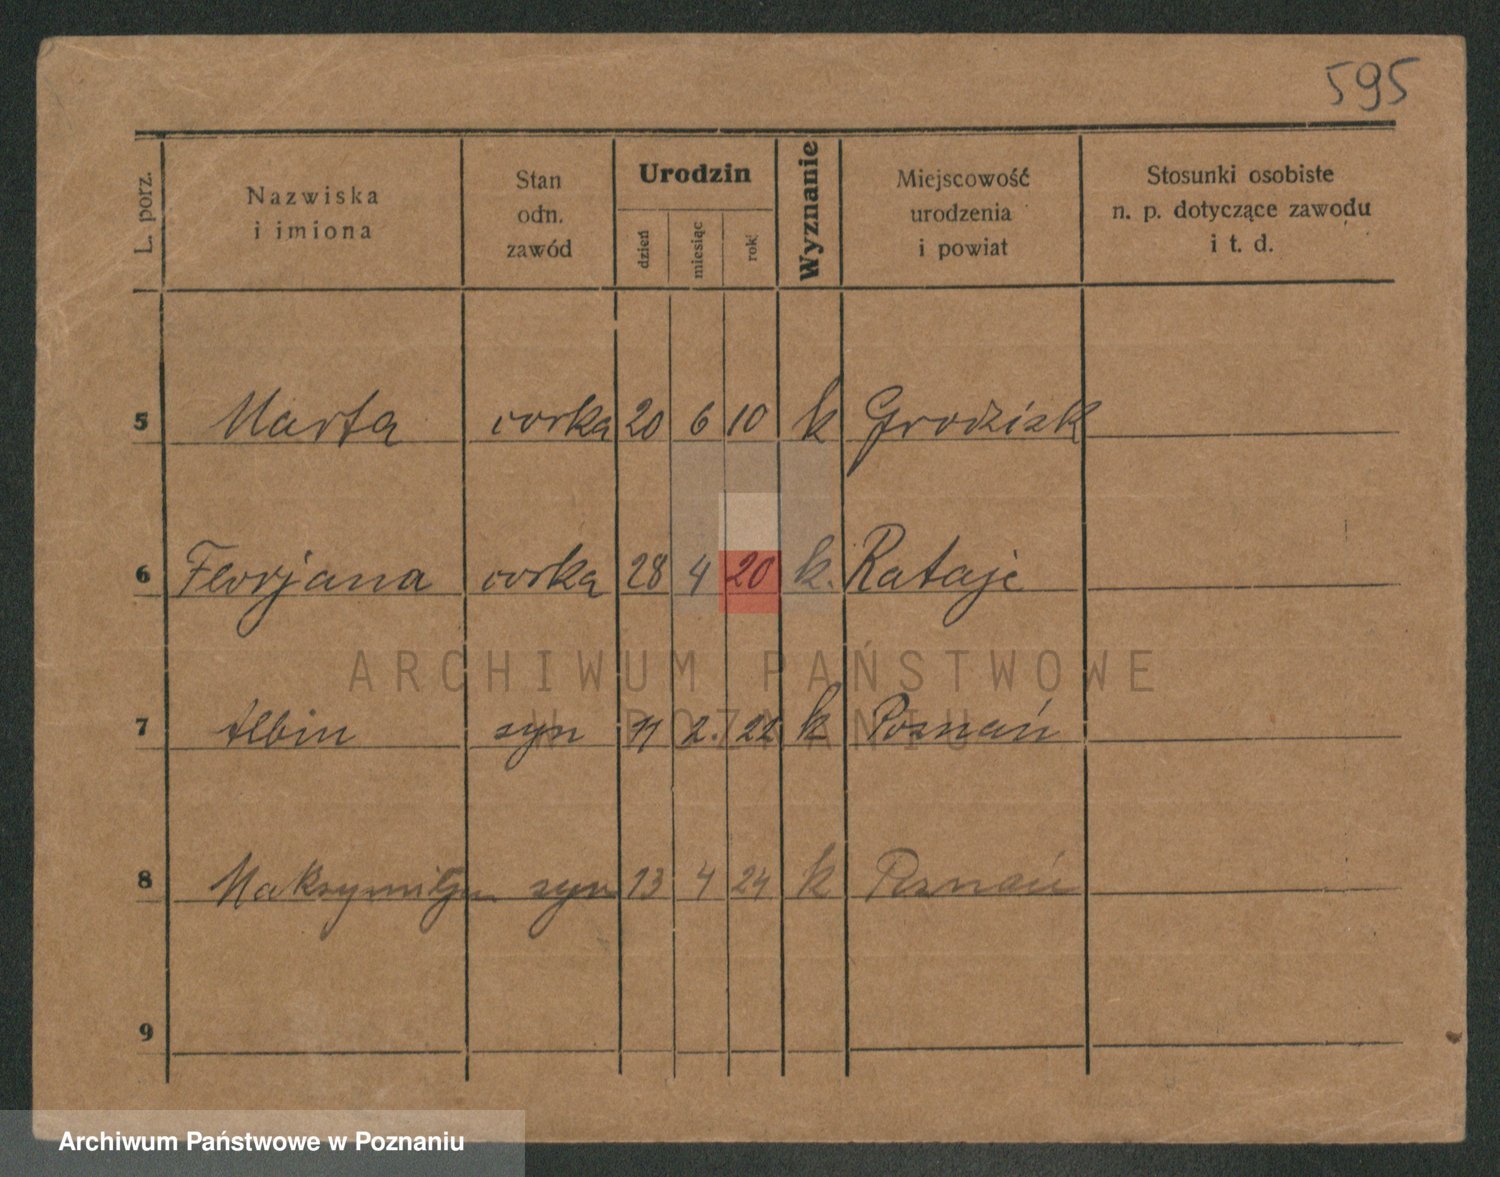 595
L. porz.
Nazwiska
i imiona
Stan
odn.
zawód
Urodzin
dzień
miesiąc
rok
Wyznanie
Miejscowość
urodzenia
i powiat
Stosunki osobiste
n. p. dotyczące zawodu
i t. d.
5 Marta corka 20 6 10 k Grodzisk
6 Florjana corka 28 4 20 k. Rataje
ARCHIWUM PAŃSTWOWE
W POZNANIU
7 Albin syn 11 2. 22 k Poznań
8 Maksymiljan syn 13 4 24 k Poznań
9
Archiwum Państwowe w Poznaniu